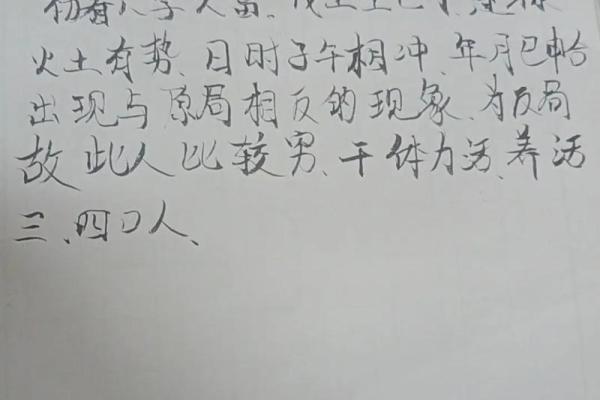 火土有势、日时子午相冲、年月巳申合
出现与原局相反的现象、为反局
故此人比较穷、干体力活、养活
三、四口人、